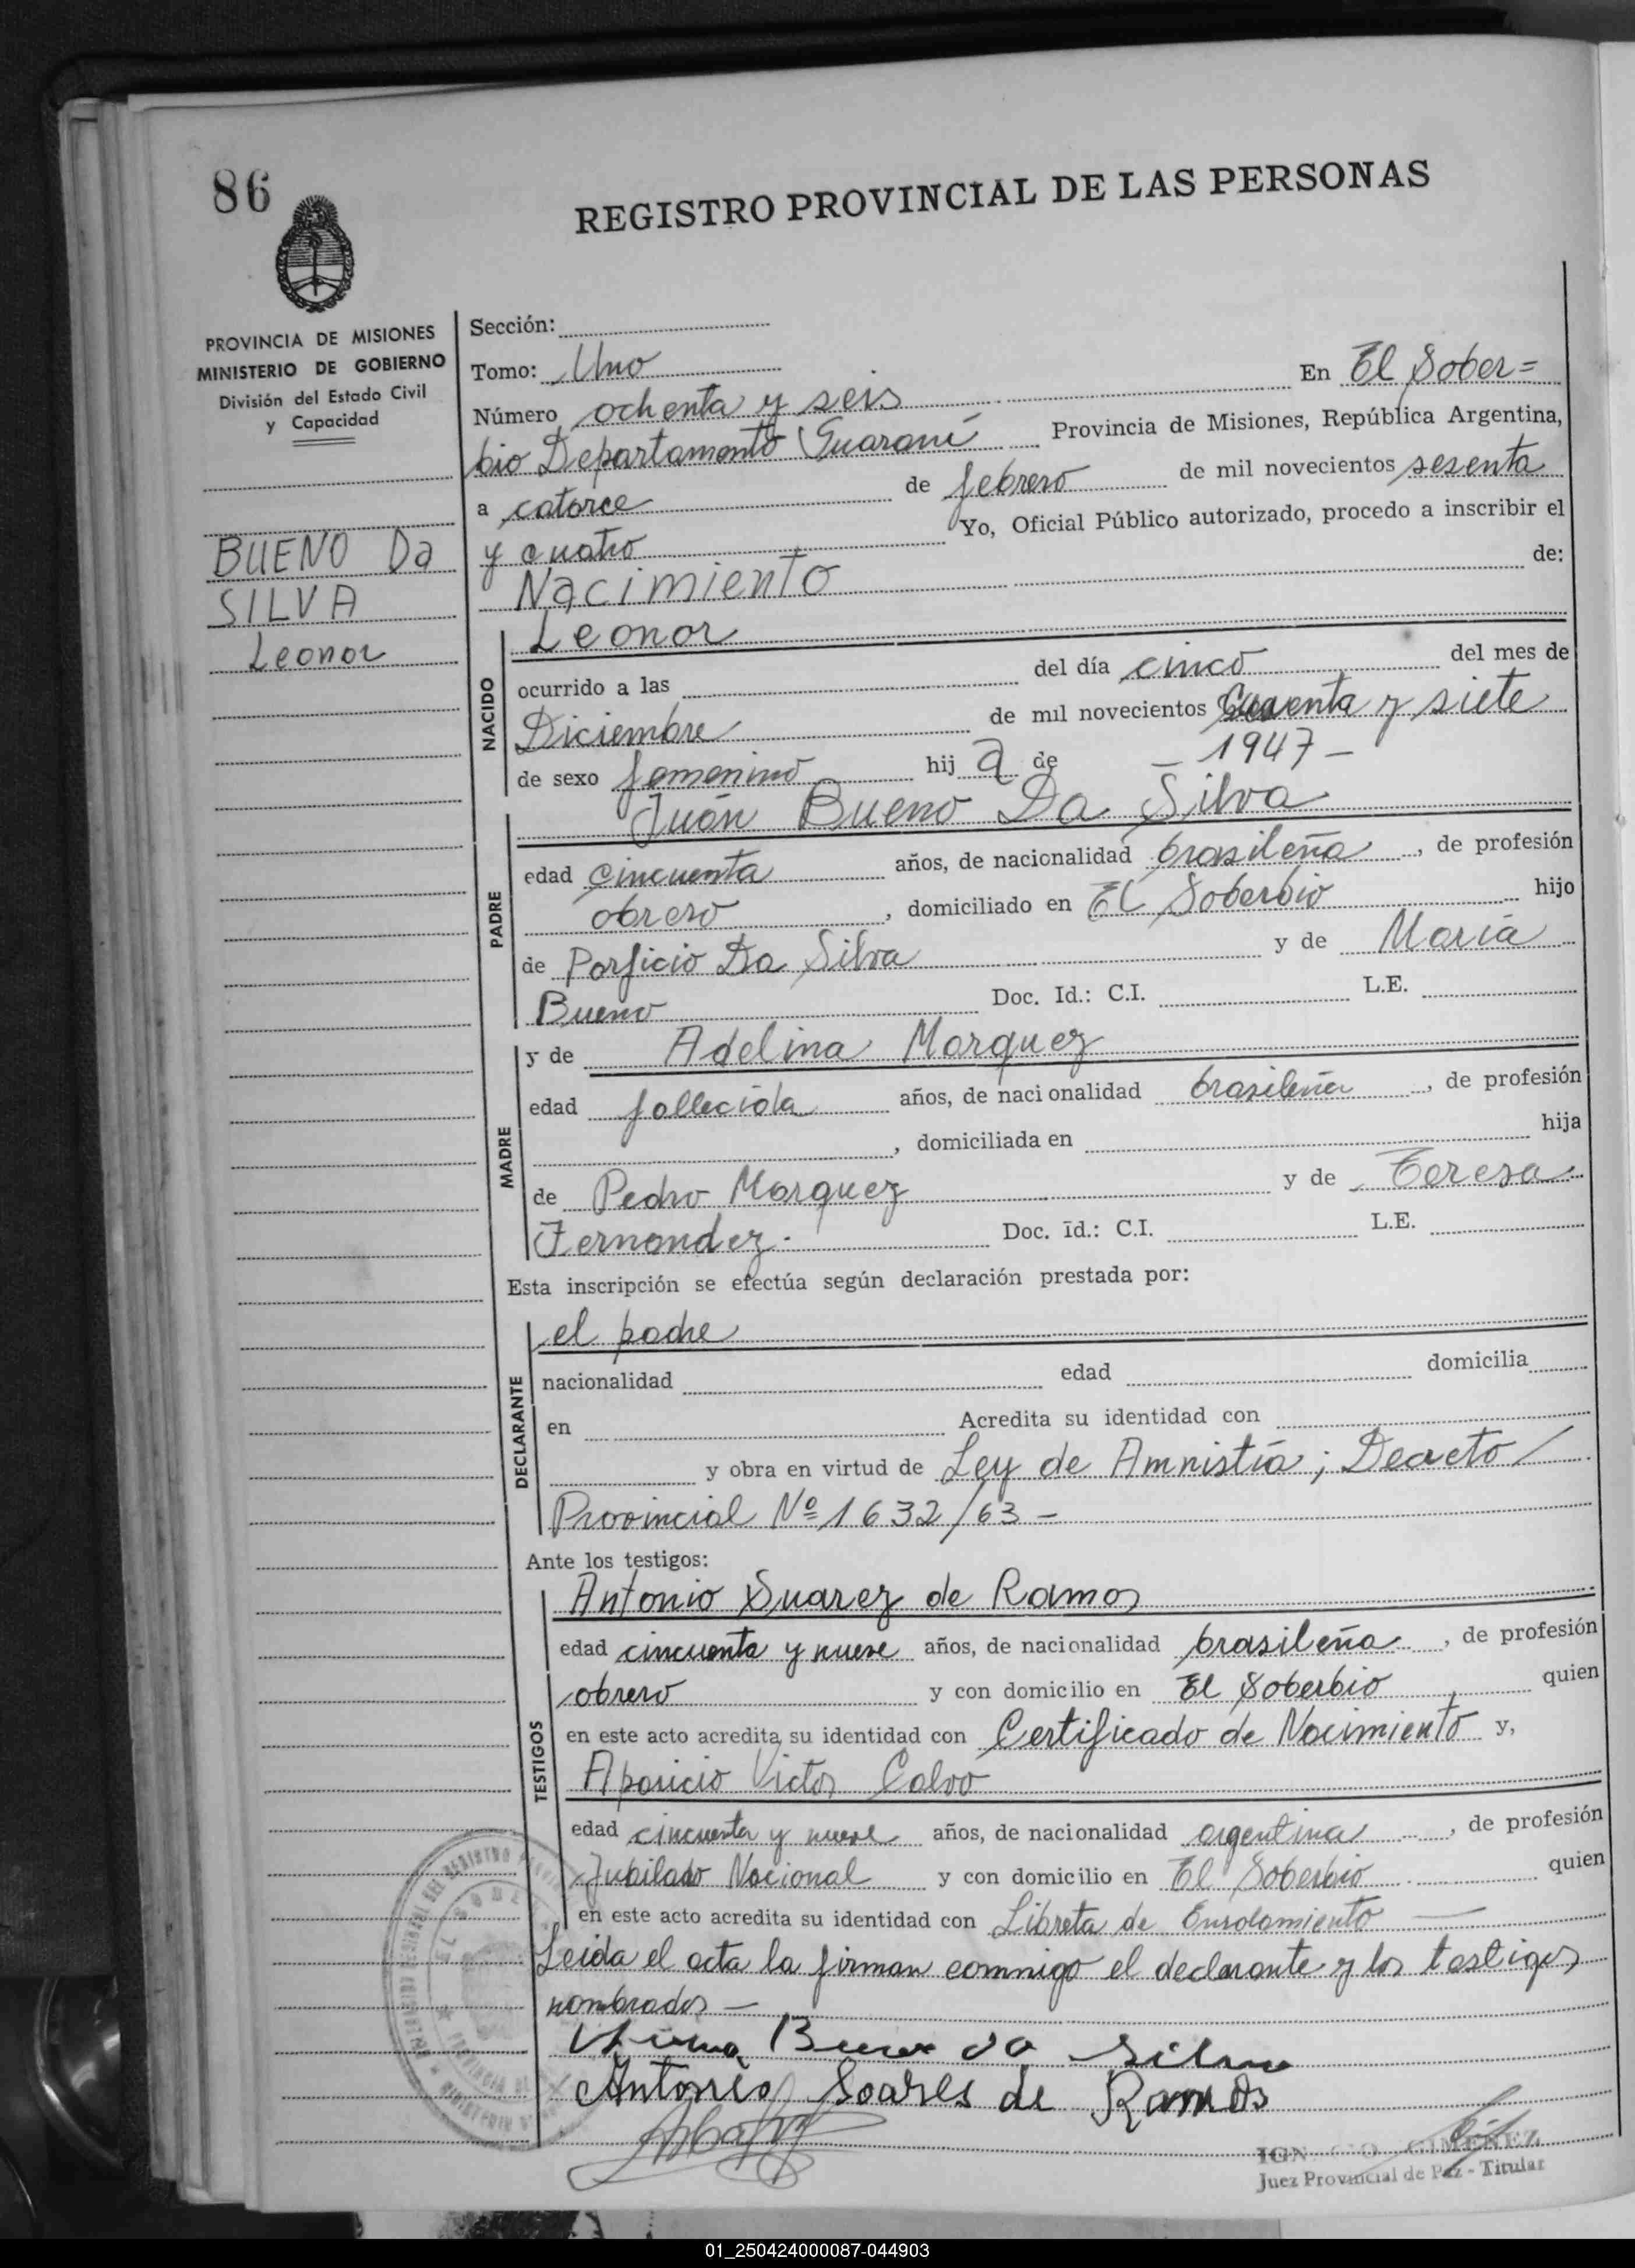 86
REGISTRO PROVINCIAL DE LAS PERSONAS
PROVINCIA DE MISIONES
MINISTERIO DE GOBIERNO
División del Estado Civil
y Capacidad
BUENO Da
SILVA
Leonor
Sección:
Tomo: Uno
En El Sober=
Número ochenta y seis
bio Departamento Guaraní Provincia de Misiones, República Argentina,
a catorce de febrero de mil novecientos sesenta
y cuatro Yo, Oficial Público autorizado, procedo a inscribir el
Nacimiento de:
NACIDO
Leonor
ocurrido a las del día cinco del mes de
Diciembre de mil novecientos cuarenta y siete
1947 -
de sexo femenino hij a de
PADRE
Juán Bueno Da Silva
edad cincuenta años, de nacionalidad brasileña, de profesión
obrero, domiciliado en El Soberbio hijo
de Porficio Da Silva y de María
Bueno Doc. Id.: C.I. L.E.
MADRE
y de Adelina Marquez
edad fallecida años, de nacionalidad brasileña, de profesión
, domiciliada en hija
de Pedro Marquez y de Teresa
Fernandez. Doc. id.: C.I. L.E.
Esta inscripción se efectúa según declaración prestada por:
DECLARANTE
el padre
nacionalidad edad domicilia
en Acredita su identidad con
y obra en virtud de Ley de Amnistía; Decreto /
Provincial Nº 1632/63 -
Ante los testigos:
TESTIGOS
Antonio Suarez de Ramos
edad cincuenta y nueve años, de nacionalidad brasileña, de profesión
obrero y con domicilio en El Soberbio quien
en este acto acredita su identidad con Certificado de Nacimiento y,
Aparicio Victor Calvo
edad cincuenta y nueve años, de nacionalidad argentina, de profesión
Jubilado Nacional y con domicilio en El Soberbio quien
en este acto acredita su identidad con Libreta de Enrolamiento
Leida el acta la firman conmigo el declarante y los testigos
nombrados -
Bueno da Silva
Antonio Soares de Ramos
GIMENEZ
Juez Provincial de Paz - Titular
01_250424000087-044903